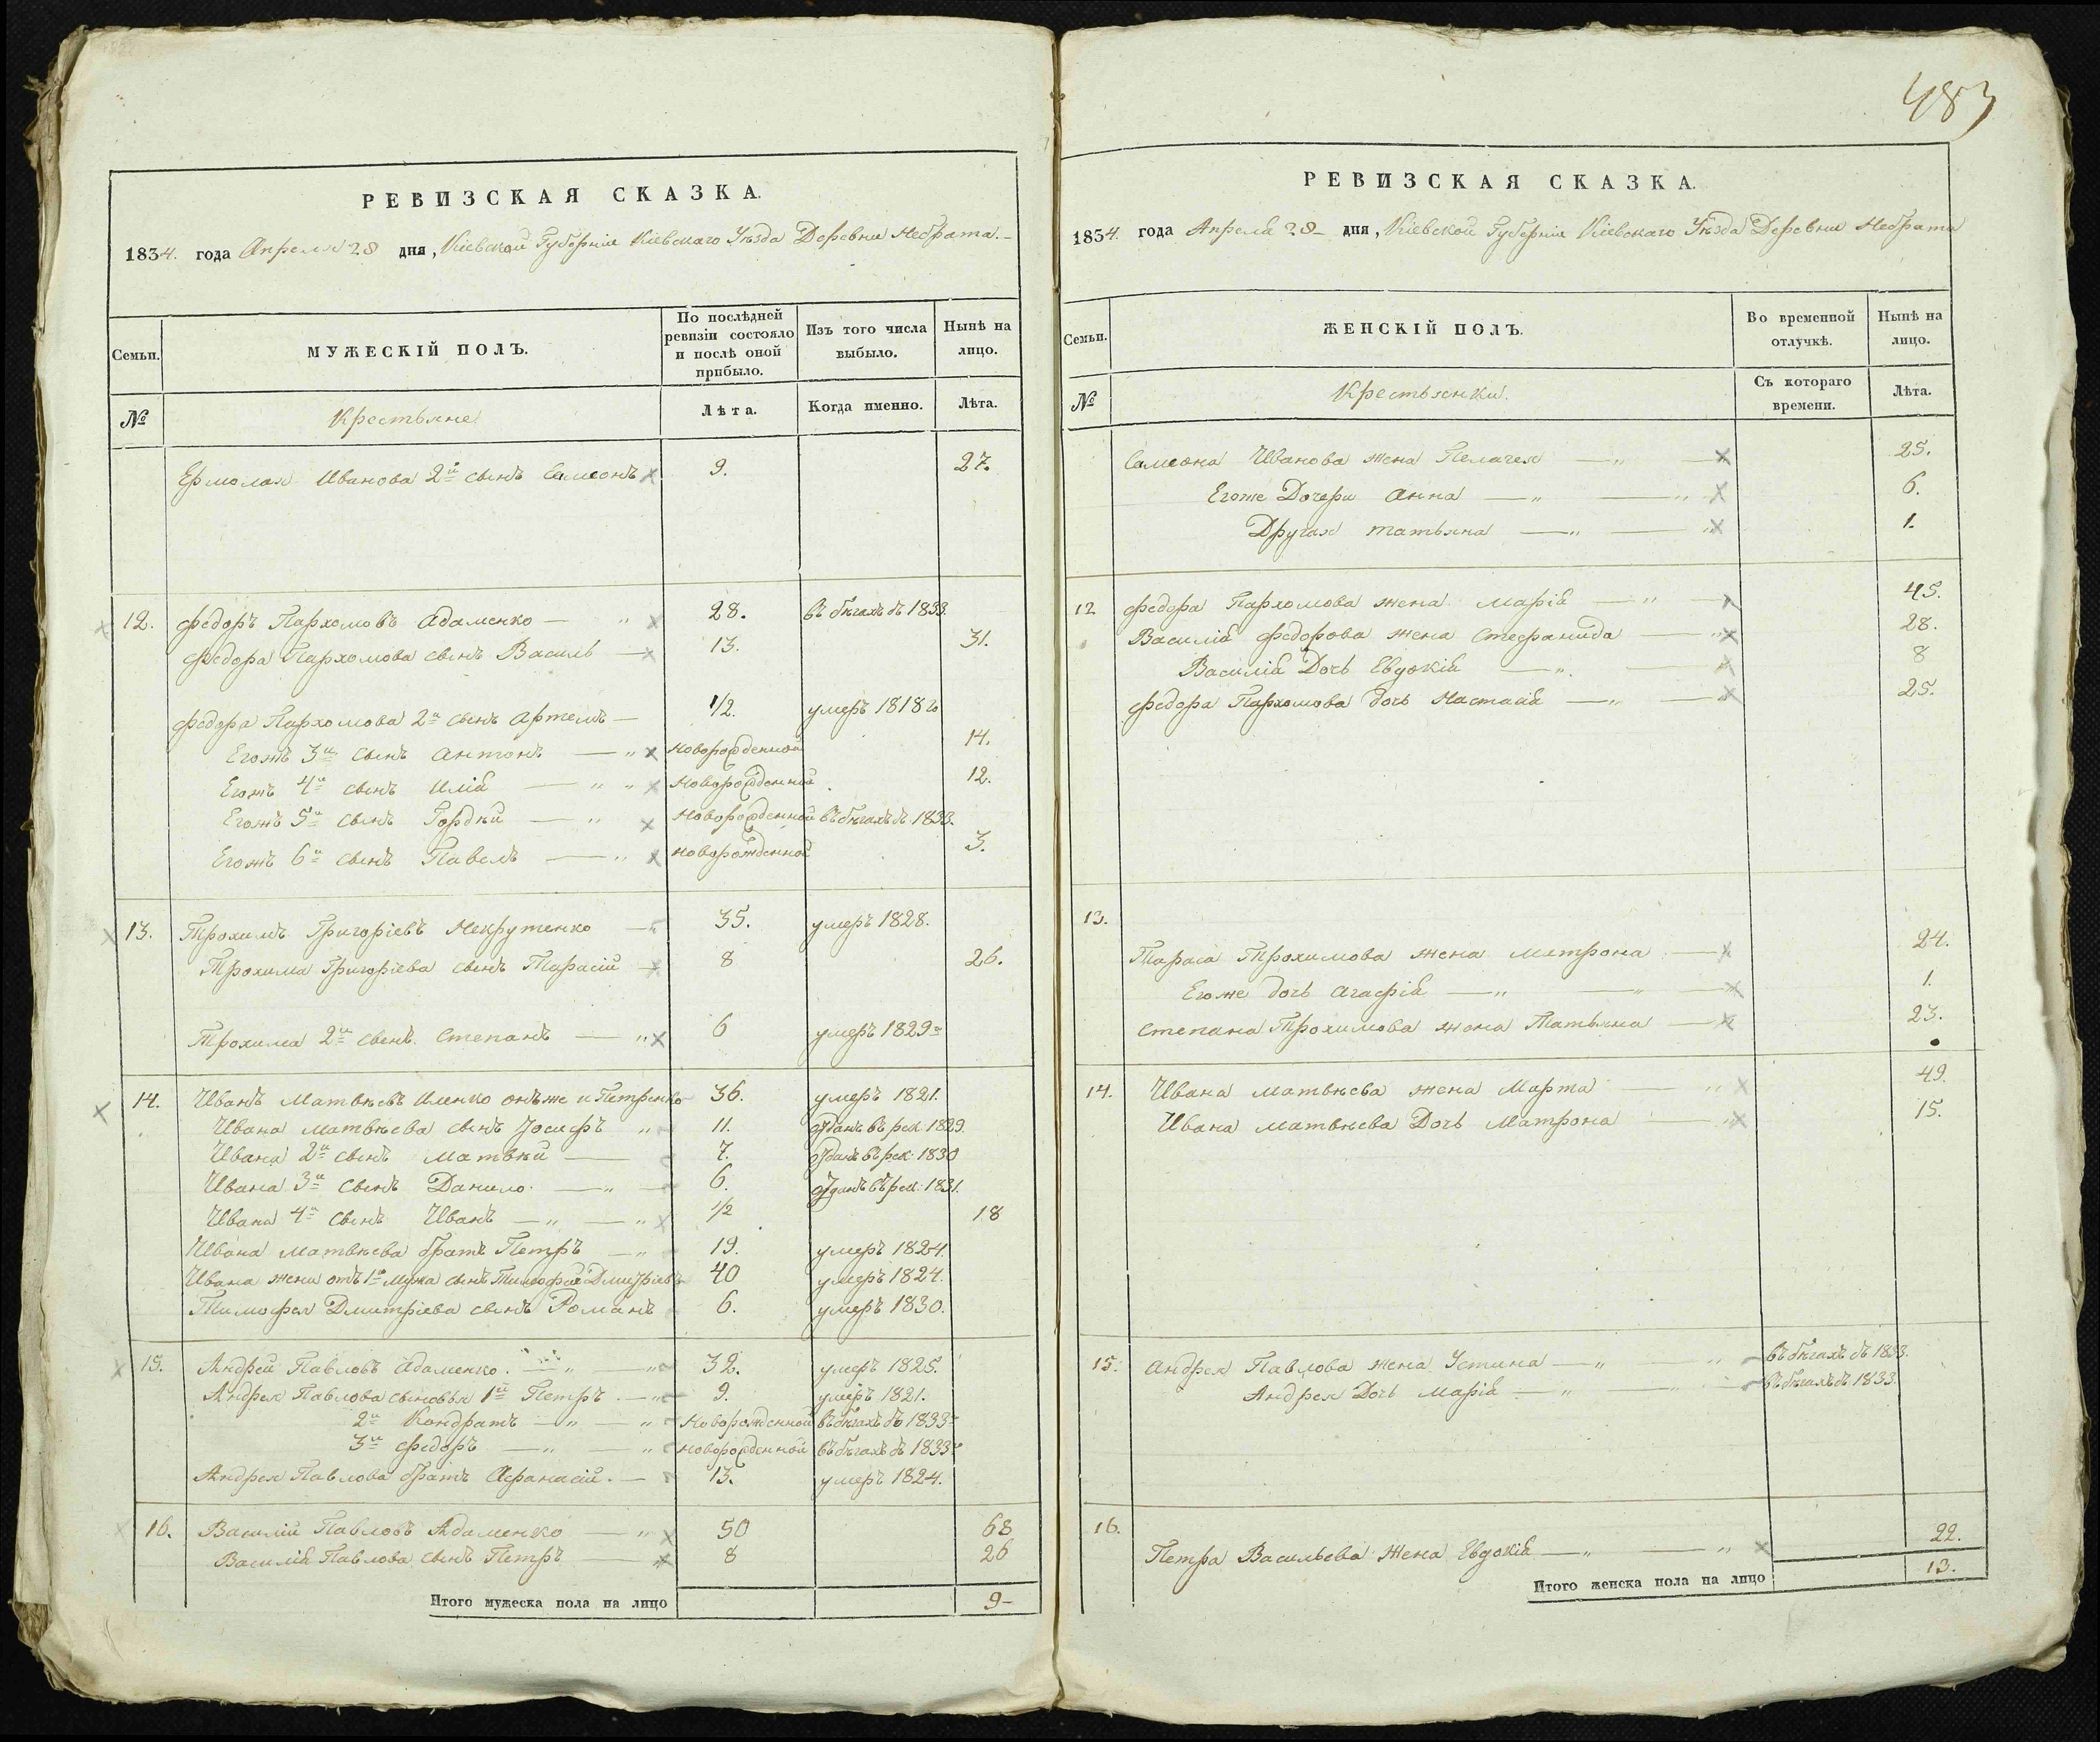 483
РЕВИЗСКАЯ СКАЗКА.
1834. года Апреля 28 дня, Кіевской Губерніи Кіевскаго Уѣзда Деревни Небрата.
Семьи. МУЖЕСКІЙ ПОЛЪ. По послѣдней ревизіи состояло и послѣ оной прибыло. Изъ того числа выбыло. Нынѣ на лицо.
№ Крестьяне Лѣта. Когда именно. Лѣта.
Ермолая Иванова 2й сынъ Самсонъ 9. 27.
12. Федоръ Пархомовъ Адаменко 28. въ бѣгахъ съ 1833.
Федора Пархомова сынъ Василь 13. 31.
Федора Пархомова 2й сынъ Артемъ 1/2. умеръ 1818го
Егожъ 3й сынъ Антонъ Новорожденной 14.
Егожъ 4й сынъ Илія Новорожденной 12.
Егожъ 5й сынъ Гордѣй Новорожденной въ бѣгахъ съ 1833.
Егожъ 6й сынъ Павелъ новорожденной 3.
13. Трохимъ Григоріевъ Некрутенко 35. умеръ 1828.
Трохима Григоріева сынъ Тарасій 8 26.
Трохима 2й сынъ Степанъ 6 умеръ 1829го
14. Иванъ Матвѣевъ Иленко онъ же и Петренко 36. умеръ 1821.
Ивана Матвѣева сынъ Іосифъ 11. отданъ въ рек. 1829.
Ивана 2й сынъ Матвѣй 7. отданъ въ рек. 1830
Ивана 3й сынъ Данило 6. отданъ въ рек. 1831.
Ивана 4й сынъ Иванъ 1/2 18
Ивана Матвѣева братъ Петръ 19. умеръ 1824.
Ивана жены отъ 1го мужа сынъ Тимофей Дмитріевъ 40 умеръ 1824.
Тимофея Дмитріева сынъ Романъ 6. умеръ 1830.
15. Андрей Павловъ Адаменко. 32. умеръ 1825.
Андрея Павлова сыновья 1й Петръ 9. умеръ 1821.
2й Кондратъ Новорожденной въ бѣгахъ съ 1833го
3й Федоръ новорожденной въ бѣгахъ съ 1833го
Андрея Павлова братъ Афанасій. 13. умеръ 1824.
16. Василій Павловъ Адаменко 50 68
Василія Павлова сынъ Петръ 8 26
Итого мужеска пола на лицо 9
РЕВИЗСКАЯ СКАЗКА.
1834. года Апреля 28 дня, Кіевской Губерніи Кіевскаго Уѣзда Деревни Небрата
Семьи. ЖЕНСКІЙ ПОЛЪ. Во временной отлучкѣ. Нынѣ на лицо.
№ Крестьянки. Съ котораго времени. Лѣта.
Самсона Иванова жена Пелагея 25.
Егоже Дочери Анна 6.
Другая Татьяна 1.
12 Федора Пархомова жена Марія 45.
Василія Федорова жена Стефанида 28.
Василія Дочь Евдокія 8
Федора Пархомова дочь Настасія 25.
13.
Тараса Трохимова жена Матрона 24.
Егоже дочь Агафія 1.
Степана Трохимова жена Татьяна 23.
14. Ивана Матвѣева жена Марта 49.
Ивана Матвѣева Дочь Матрона 15.
15. Андрея Павлова жена Устина въ бѣгахъ съ 1833.
Андрея Дочь Марія въ бѣгахъ съ 1833
16.
Петра Васильева Жена Евдокія 22.
Итого женска пола на лицо 13.